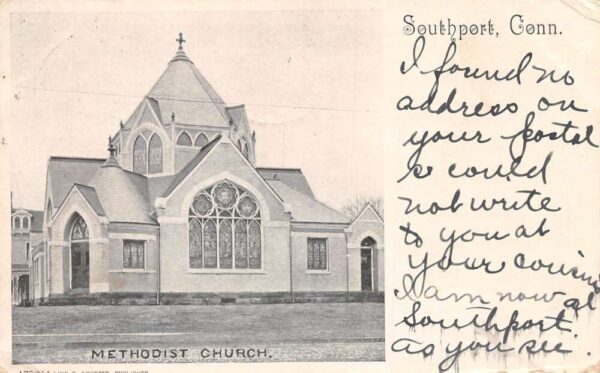 Southport, Conn.
I found no
address on
your postal
so could
not write
to you at
your cousins
I am now at
Southport.
As you see.
METHODIST CHURCH.
PUBLISHER